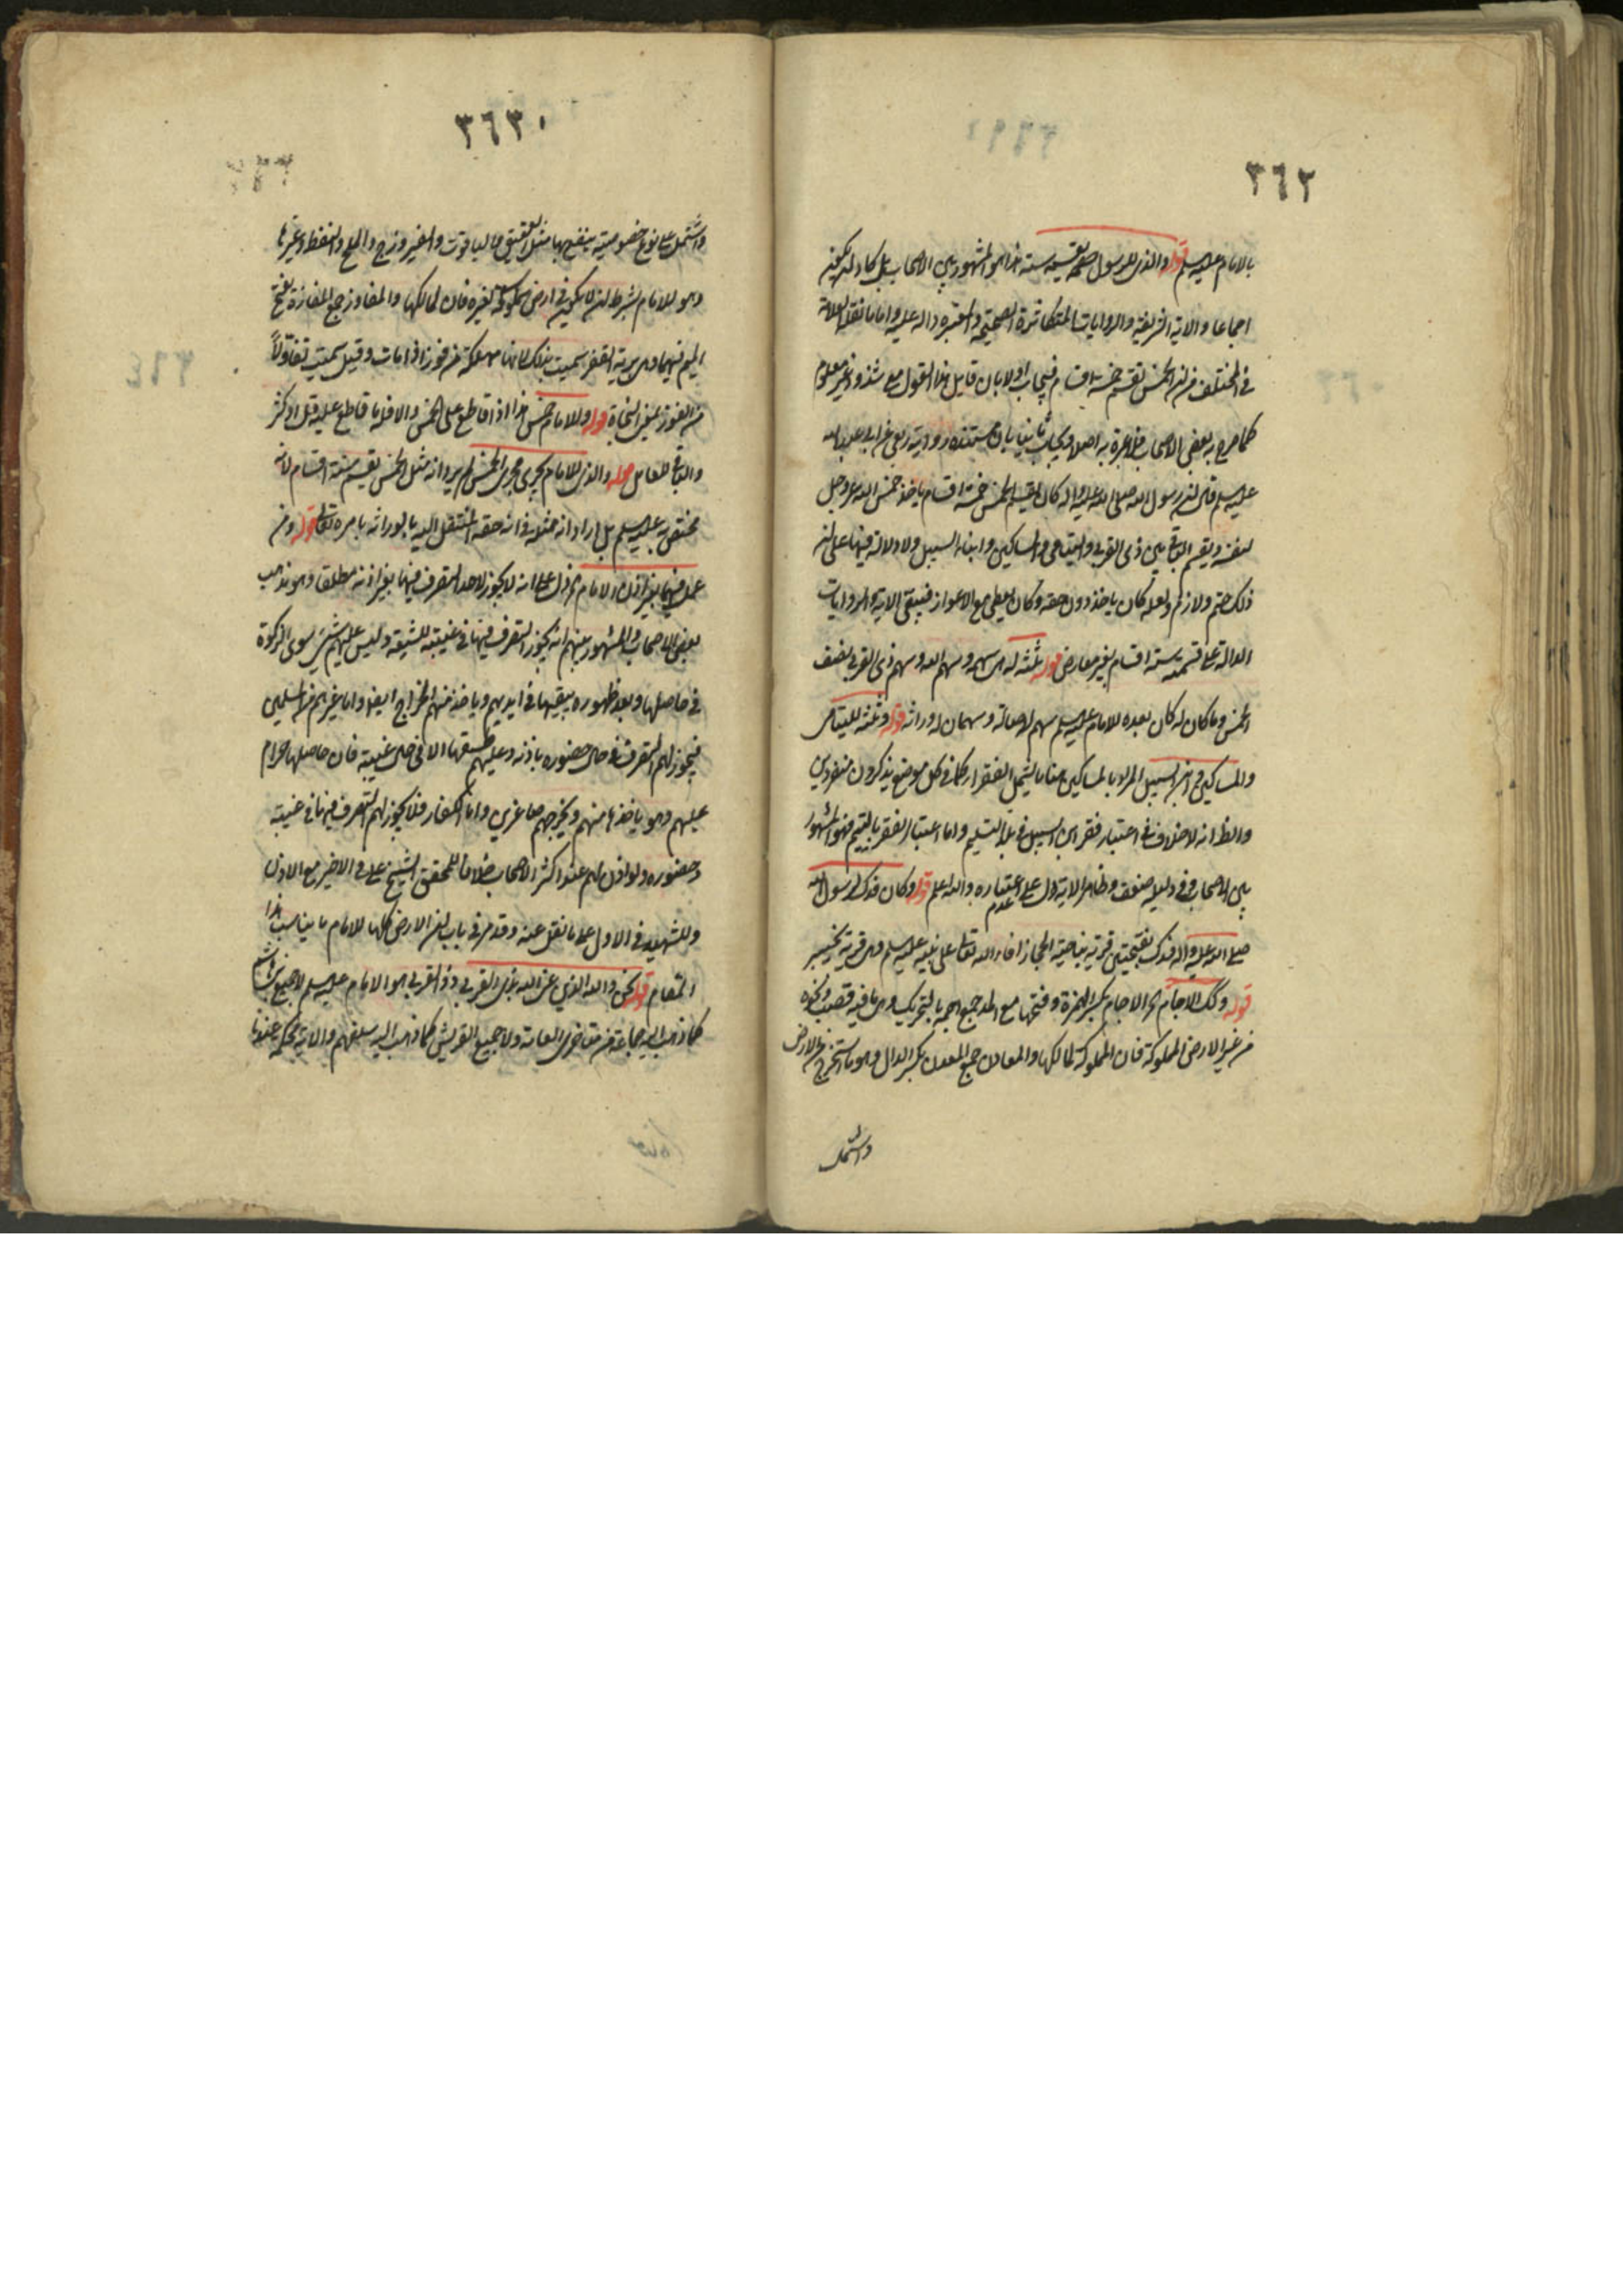 ٣٦٢
بالامام عليه السلم قوله والذى للرسول صلعم يقسمه ستة هذا هو المشهور بين الاصحاب بل كاد ان يكون
اجماعا والاية الشريفة والروايات المتكاثرة الصحيحة والمعتبرة دالة عليه واما ما نقله العلامة
فى المختلف من ان الخمس يقسم خمسة اقسام فيجاب اولا بان قايل هذا القول مع شذوذه غير معلوم
كما صرح به بعض الاصحاب فلا عبرة به اصلا ويجاب ثانيا بان مستنده رواية ربعى عن ابى عبد الله
عليه السلم قال ان رسول الله صلى الله عليه واله كان يقسم الخمس خمسة اقسام ياخذ خمس الله عز وجل
لنفسه ويقسم الباقى بين ذى القربى واليتامى والمساكين وابناء السبيل ولا دلالة فيها على ان
ذلك حتم ولازم ولعله كان ياخذ دون حقه وكان يعطى مع الاعواز فيبقى الاية والروايات
الدالة على قسمته ستة اقسام بغير معارض قوله ثلثة له هى سهمه وسهم الله وسهم ذى القربى نصف
الخمس وما كان له كان بعده للامام عليه السلم سهم له اصالة وسهمان له وراثة قوله وثلثة لليتامى
والمساكين وابن السبيل المراد بالمساكين هنا ما يشمل الفقراء كما فى كل موضع يذكرون منفردين
والظ انه لا خلاف فى اعتبار فقر ابن السبيل فى بلد التسليم واما اعتبار الفقر باليتيم فهو المشهور
بين الاصحاب وفى دليله ضعف وظاهر الاية دل على عدم اعتباره والله اعلم قوله وكان فدك لرسول الله
صلى الله عليه واله فدك بفتحتين قرية بناحية الحجاز افاء الله تعالى على نبيه عليه السلم وهى قريبة بخيبر
قوله وكك الاجام الاجام بكسر الهمزة وفتحها مع المد جمع اجمة بالتحريك وهى ما فيه قصب ونحوه
من غير الارض المملوكة فان المملوكة لمالكها والمعادن جمع المعدن بكسر الدال وهو ما استخرج من الارض
واشتمل
٣٦٣
واشتمل على نوع خصوصية ينتفع بها مثل العقيق والياقوت والفيروزج والملح والنفط وغيرها
وهو للامام بشرط ان لا يكون فى ارض مملوكة لغيره فان لمالكها والمفاوز جمع المفازة بفتح
الميم فيهما وهى برية القفر سميت بذلك لانها مهلكة من فوز اذا مات وقيل سميت تفاؤلاً
من الفوز بمعنى النجاة قوله وللامام خمس هذا اذا قاطع على الخمس والا فله ما قاطع عليه قل او كثر
والباقى للعامل قوله والذى للامام يجرى مجرى الخمس لم يرد انه مثل الخمس يقسم ستة اقسام لانه
مختص به عليه السلم بل اراد انه مثله فى انه حقه المنتقل اليه بالوراثة بامره تعالى قوله ومن
عمل فيها بغير اذن الامام دل على انه لا يجوز لاحد التصرف فيها بغير اذنه مطلقا وهو مذهب
بعض الاصحاب والمشهور بينهم انه يجوز التصرف فيها فى غيبته للشيعة وليس عليهم شئ سوى الزكوة
فى حاصلها وبعد ظهوره يبقيها فى ايديهم وياخذ منهم الخراج ايضا واما غيرهم من المسلمين
فيجوز لهم التصرف فى حال حضوره باذنه وعليهم طسقها لا فى حال غيبته فان حاصلها حرام
عليهم وهو ياخذها منهم ويخرجهم صاغرين واما الكفار فلا يجوز لهم التصرف فيها فى غيبته
وحضوره ولو اذن لهم عند اكثر الاصحاب خلافا للمحقق الشيخ على فى الاخير مع الاذن
وللشهيد فى الاول على ما نقل عنه وقد مر فى باب ان الارض كلها للامام ما يناسب هذا
المقام قوله نحن والله الذين عنى الله بذى القربى ذو القربى هو الامام عليه السلم لا جميع بنى هاشم
كما ذهب اليه جماعة من متاخرى العامة ولا جميع القريش كما ذهب اليه سلفهم والاية محكمة عندنا